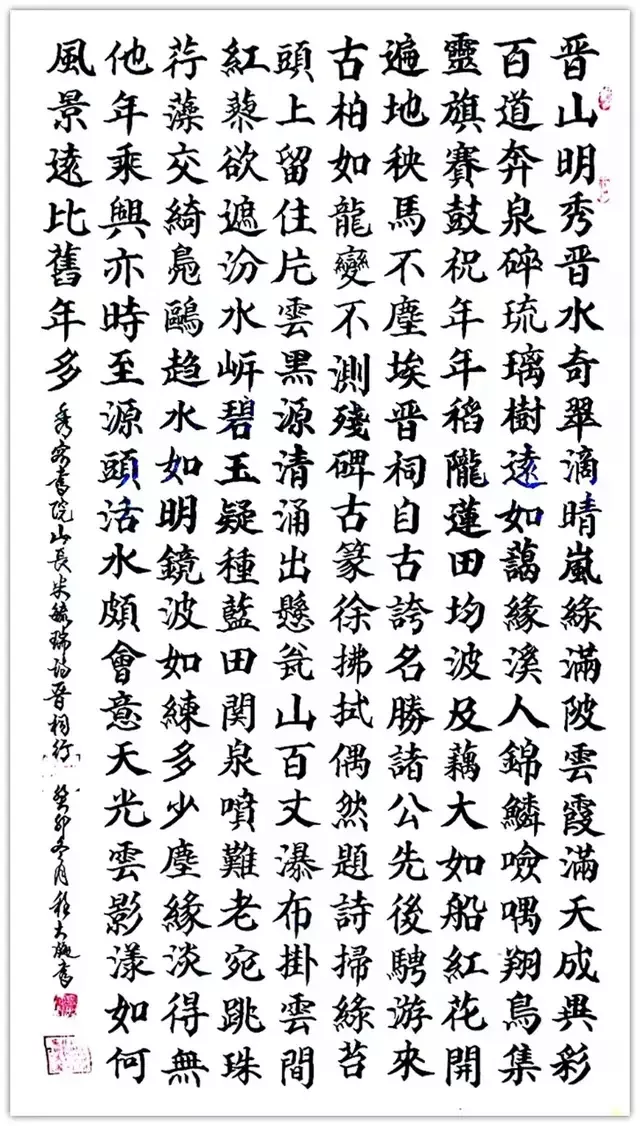 晋山明秀晋水奇翠滴晴嵐緑滿陂雲霞滿天成異彩
百道奔泉碎琉璃樹遠如藹緣溪人錦鱗噞喁翔鳥集
靈旗賽鼓祝年年稻隴蓮田均波及藕大如船紅花開
遍地秧馬不塵埃晋祠自古誇名勝諸公先後騁游來
古柏如龍變不測殘碑古篆徐拂拭偶然題詩掃綠苔
頭上留住片雲黑源清涌出懸瓮山百丈瀑布掛雲間
紅藜欲遮汾水岍碧玉疑種藍田関泉噴難老宛跳珠
荇藻交綺鳧鷗趋水如明鏡波如練多少塵緣淡得無
他年乘興亦時至源頭活水頗會意天光雲影漾如何
風景遠比舊年多
秀容書院山長米毓瑞詩晋祠行 癸卯冬月 書